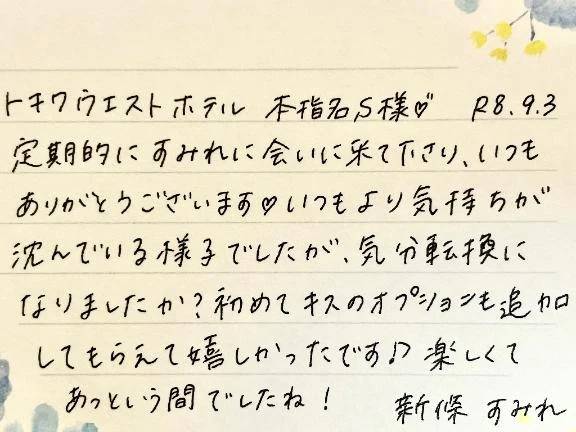 トキワウエストホテル 本指名S様♡ R8.9.3
定期的にすみれに会いに来て下さり、いつも
ありがとうございます♡いつもより気持ちが
沈んでいる様子でしたが、気分転換に
なりましたか?初めてキスのオプションも追加
してもらえて嬉しかったです♪楽しくて
あっという間でしたね!
新條 すみれ